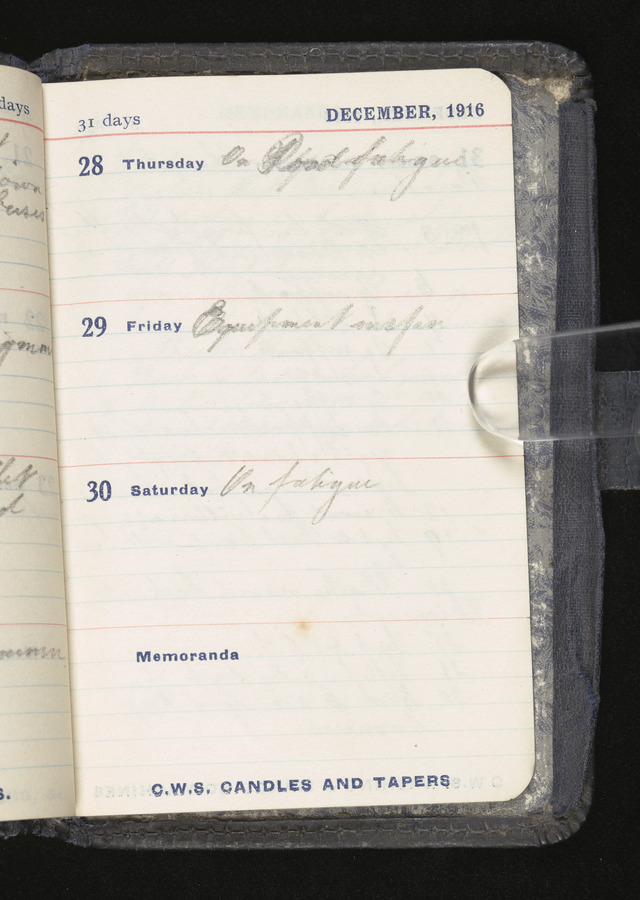 days
31 days
DECEMBER, 1916
28 Thursday On Road fatigue
29 Friday Equipment
30 Saturday On fatigue
Memoranda
C.W.S. CANDLES AND TAPERS